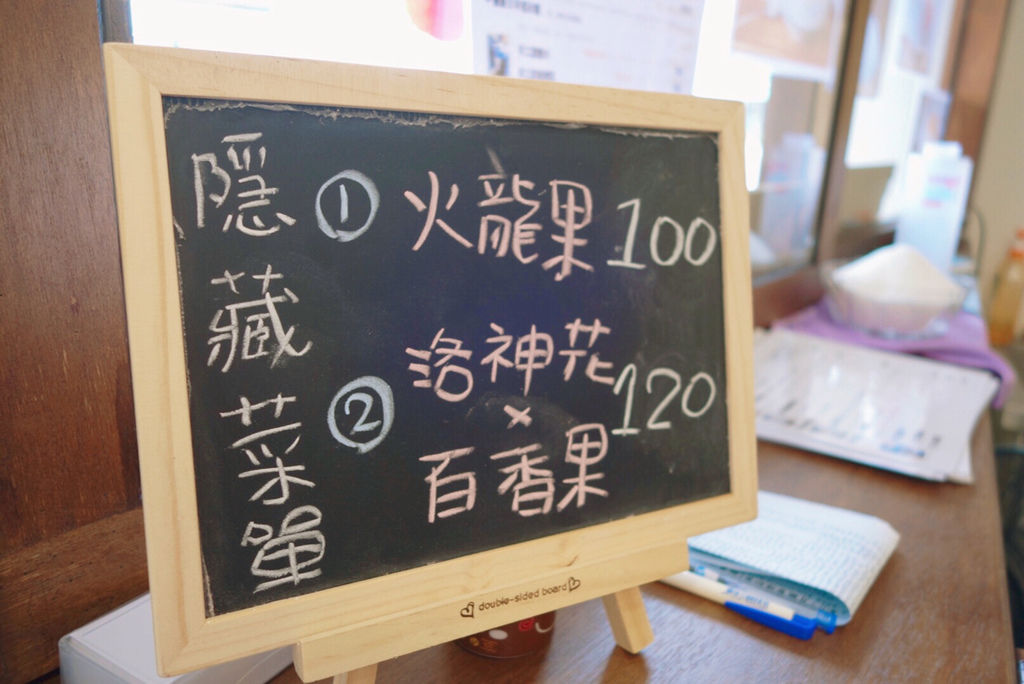 隱藏菜單
① 火龍果 100
② 洛神花 120
×
百香果
double-sided board